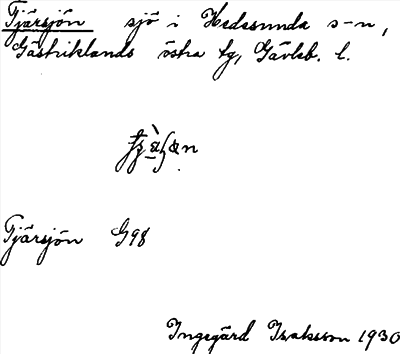 Tjärsjön sjö i Hedesunda s-n,
Gästriklands östra tg, Gävleb. l.
Tjärsjön G98
Ingegärd Isaksson 1930